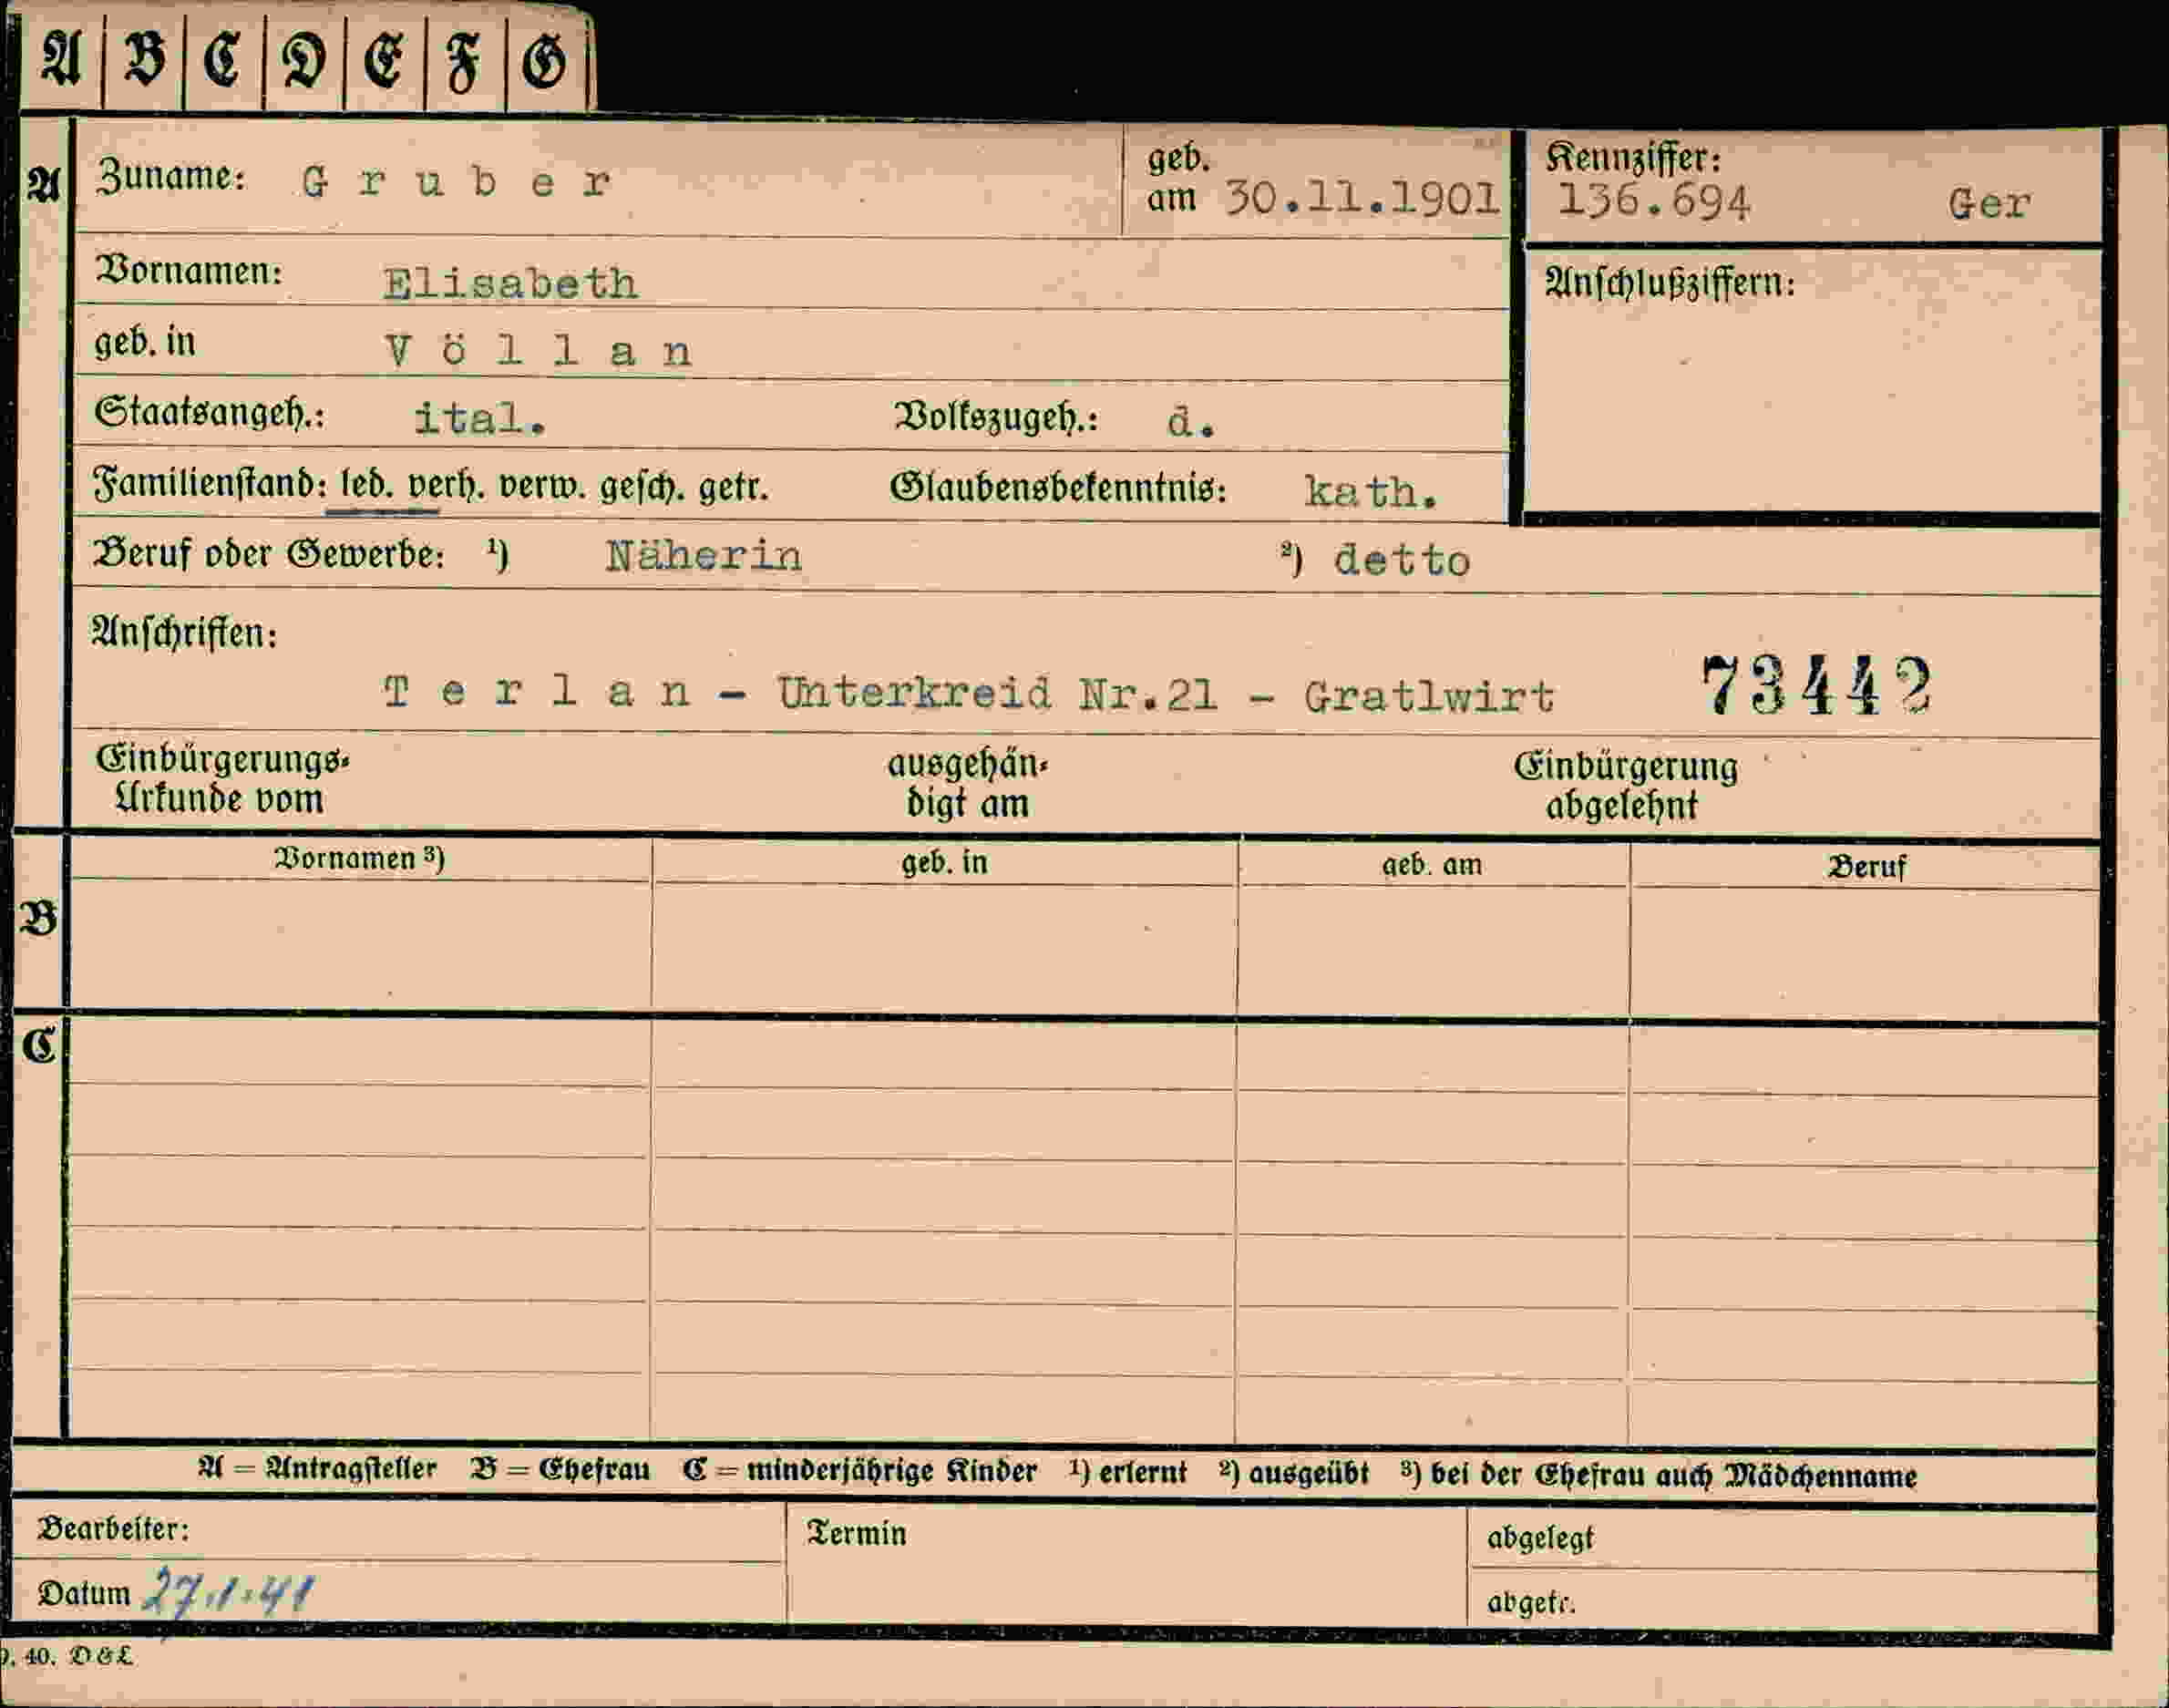 A B C D E F G
A Zuname: Gruber geb. am 30.11.1901 Kennziffer: 136.694 Ger
Vornamen: Elisabeth Anschlußziffern:
geb. in Völlan
Staatsangeh.: ital. Volkszugeh.: d.
Familienstand: led. verh. verw. gesch. getr. Glaubensbekenntnis: kath.
Beruf oder Gewerbe: ¹) Näherin ²) detto
Anschriften:
Terlan - Unterkreid Nr.21 - Gratlwirt 73442
Einbürgerungs- ausgehän- Einbürgerung
Urkunde vom digt am abgelehnt
Vornamen ³) geb. in geb. am Beruf
B
C
A = Antragsteller B = Ehefrau C = minderjährige Kinder ¹) erlernt ²) ausgeübt ³) bei der Ehefrau auch Mädchenname
Bearbeiter: Termin abgelegt
Datum 27.1.41 abgetr.
40. D & L